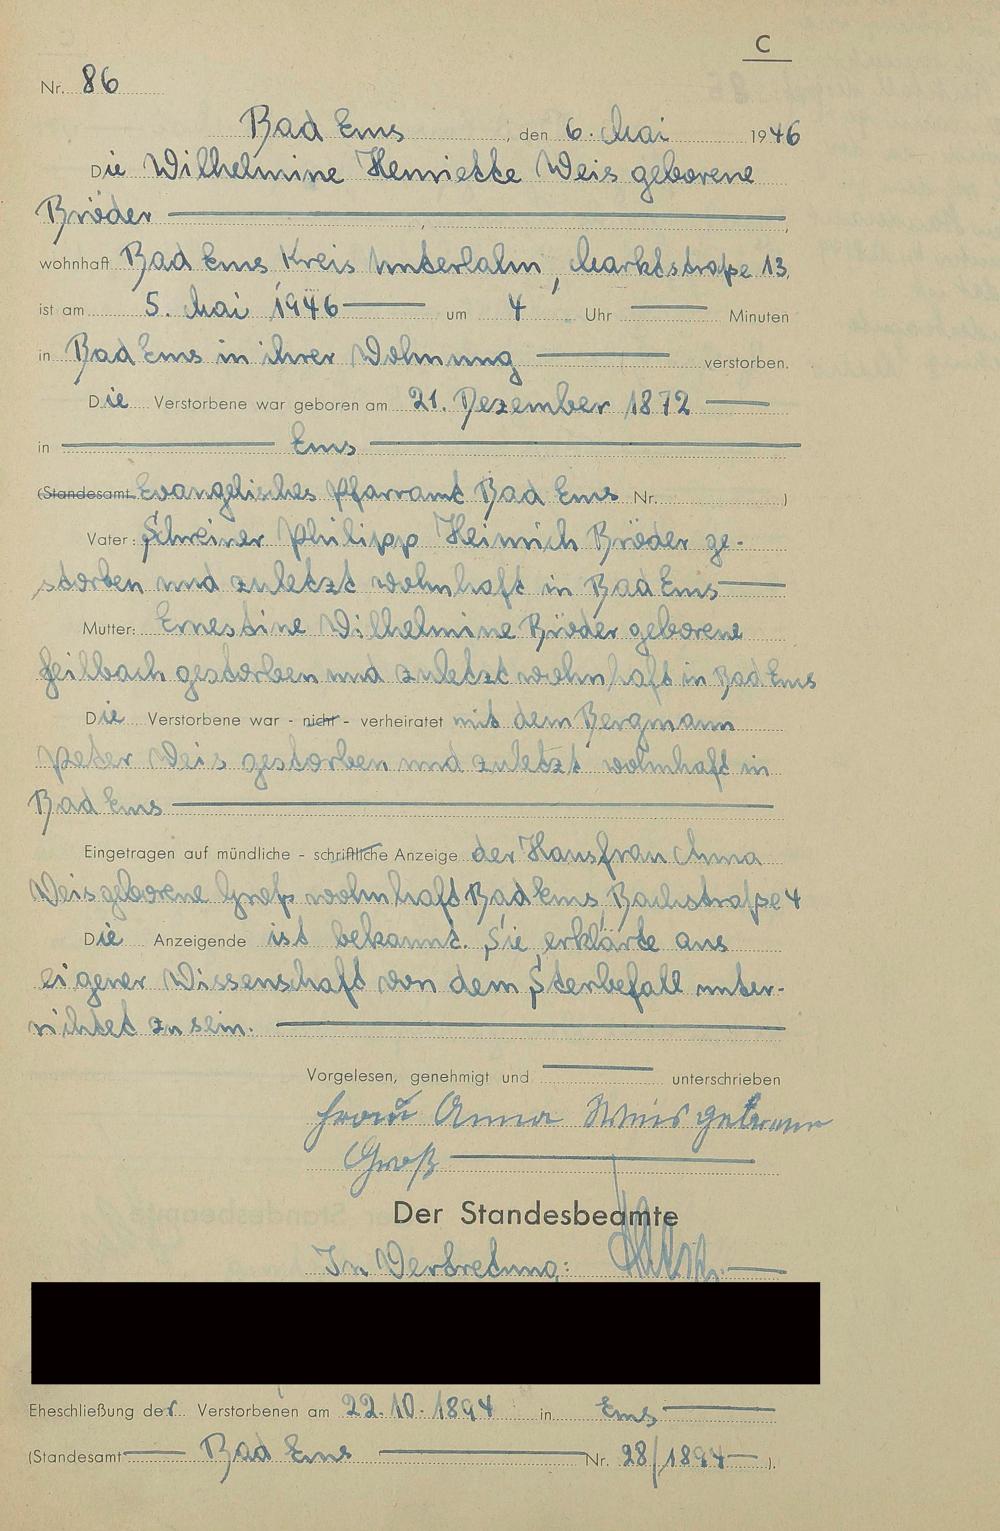 C
Nr. 86
Bad Ems, den 6. Mai 1946
Die Wilhelmine Henriette Weis geborene
Bröder
wohnhaft Bad Ems Kreis Unterlahn, Marktstraße 13,
ist am 5. Mai 1946 um 4 Uhr Minuten
in Bad Ems in ihrer Wohnung verstorben.
Die Verstorbene war geboren am 21. Dezember 1872
in Ems
(Standesamt Evangelisches Pfarramt Bad Ems Nr. )
Vater: Schreiner Philipp Heinrich Bröder ge-
storben und zuletzt wohnhaft in Bad Ems
Mutter: Ernestine Wilhelmine Bröder geborene
Feilbach gestorben und zuletzt wohnhaft in Bad Ems
Die Verstorbene war - nicht - verheiratet mit dem Bergmann
Peter Weis gestorben und zuletzt wohnhaft in
Bad Ems
Eingetragen auf mündliche - schriftliche Anzeige der Hausfrau Anna
Weis geborene Groß wohnhaft Bad Ems Bachstraße 4
Die Anzeigende ist bekannt. Sie erklärte aus
eigener Wissenschaft von dem Sterbefall unter-
richtet zu sein.
Vorgelesen, genehmigt und unterschrieben
Frau Anna Weis geborene
Groß
Der Standesbeamte
In Vertretung:
Eheschließung der Verstorbenen am 22.10.1894 in Ems
(Standesamt Bad Ems Nr. 28/1894 ).